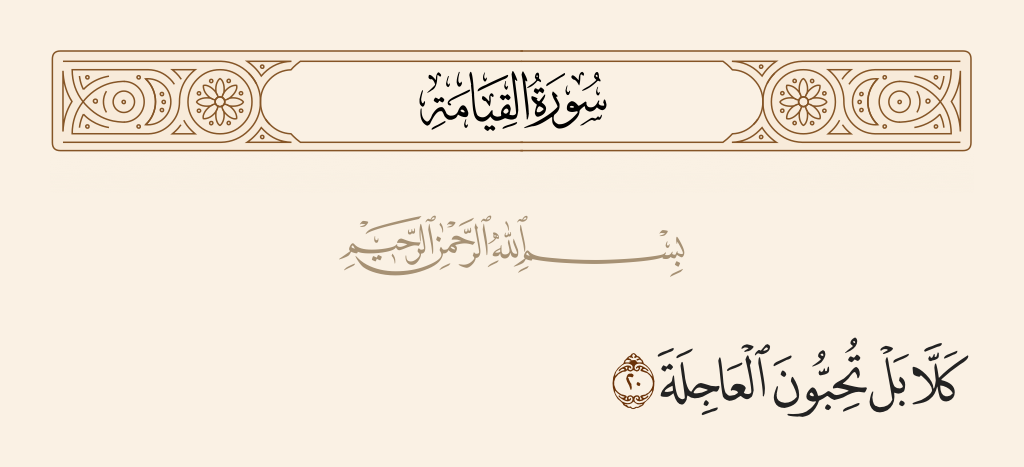 سُورَةُ القِيَامَةِ
بِسْمِ ٱللَّهِ ٱلرَّحْمَٰنِ ٱلرَّحِيمِ
كَلَّا بَلْ تُحِبُّونَ ٱلْعَاجِلَةَ ٢٠